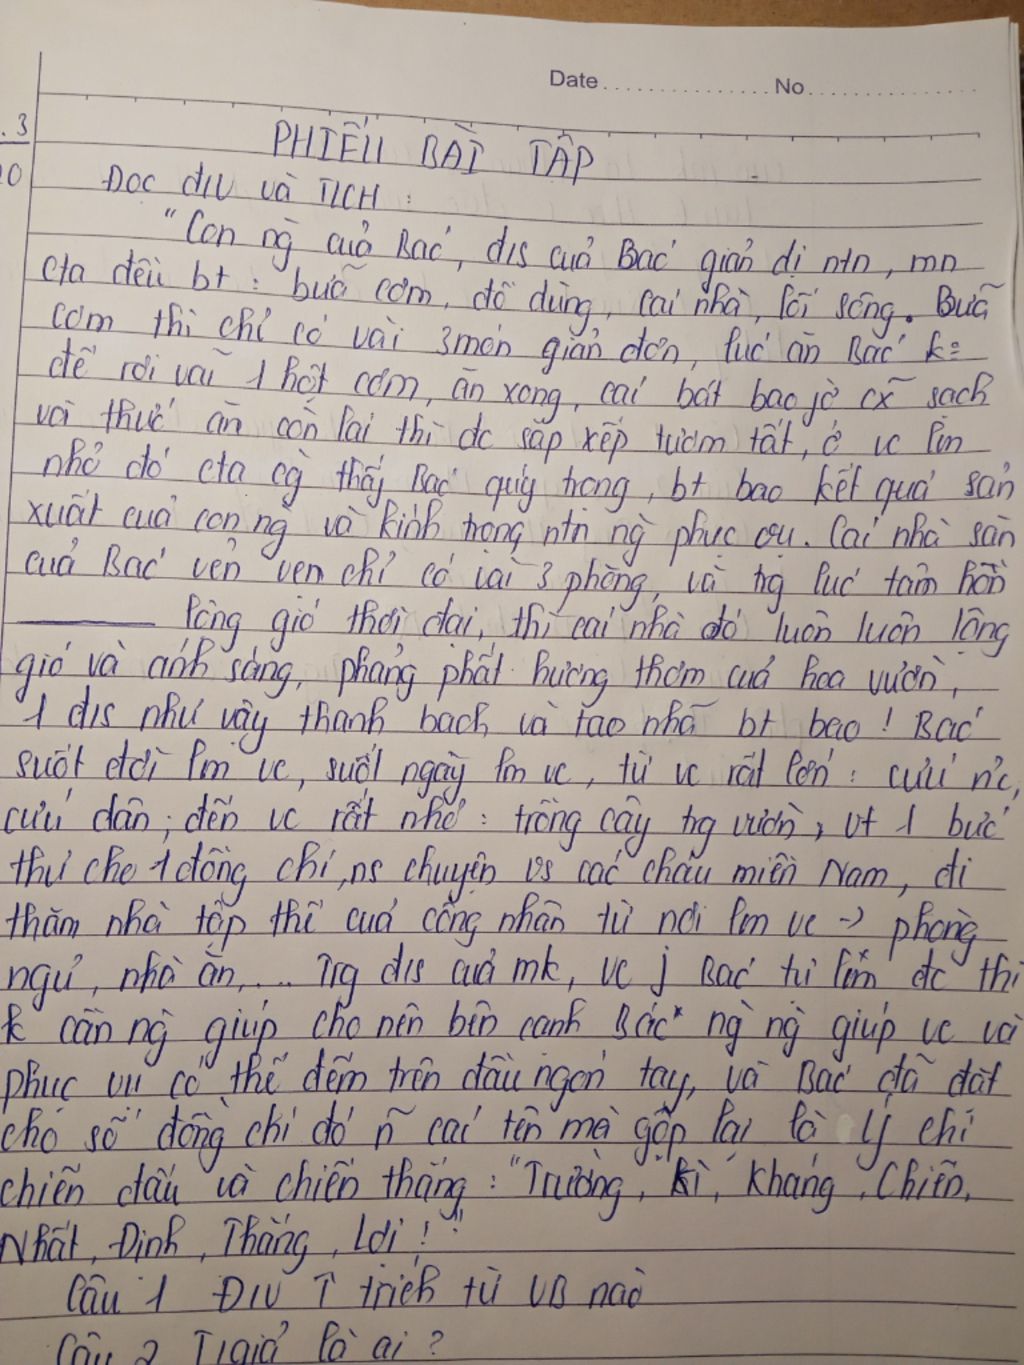 Date No
.3
20
PHIẾU BÀI TẬP
Đọc đ1v và TLCH :
"Con ng̀ của Bác, đ1s của Bác giản dị ntn, mn
cta đều bt : bữa cơm, đồ dùng, cái nhà, lối sống. Bữa
cơm thì chỉ có vài 3 món giản đơn, lúc ăn Bác k=
để rơi vãi 1 hột cơm, ăn xong, cái bát bao jờ cx̃ sạch
và thức ăn còn lại thì đc sắp xếp tươm tất, ở vc lm
nhỏ đó cta cg̀ thấy Bác quý trọng, bt bao kết quả sản
xuất của con ng̀ và kính trọng ntn ng̀ phục vụ. Cái nhà sàn
của Bác vẻn vẹn chỉ có vài 3 phòng, và trg lúc tâm hồn
lộng gió thời đại, thì cái nhà đó luôn luôn lộng
gió và ánh sáng, phảng phất hương thơm của hoa vườn,
1 đ1s như vậy thanh bạch và tao nhã bt bao ! Bác
suốt đời lm vc, suốt ngày lm vc, từ vc rất lớn : cứu nc,
cứu dân, đến vc rất nhỏ : trồng cây trg vườn, vt 1 bức
thư cho 1 đồng chí, ns chuyện vs các cháu miền Nam, đi
thăm nhà tập thể của công nhân từ nơi lm vc -> phòng
ngủ, nhà ăn,... Trg đ1s của mk, vc j Bác tự lm đc thì
k cần ng̀ giúp cho nên bên cạnh Bác ng̀ ng̀ giúp vc và
phục vụ có thể đếm trên đầu ngón tay, và Bác đã đặt
cho số đồng chí đó ñ cái tên mà gộp lại là ý chí
chiến đấu và chiến thắng : "Trường, Kì, Kháng, Chiến,
Nhất, Định, Thắng, Lợi !"
Câu 1 Đ1V T trích từ VB nào
Câu 2 T1giả là ai ?